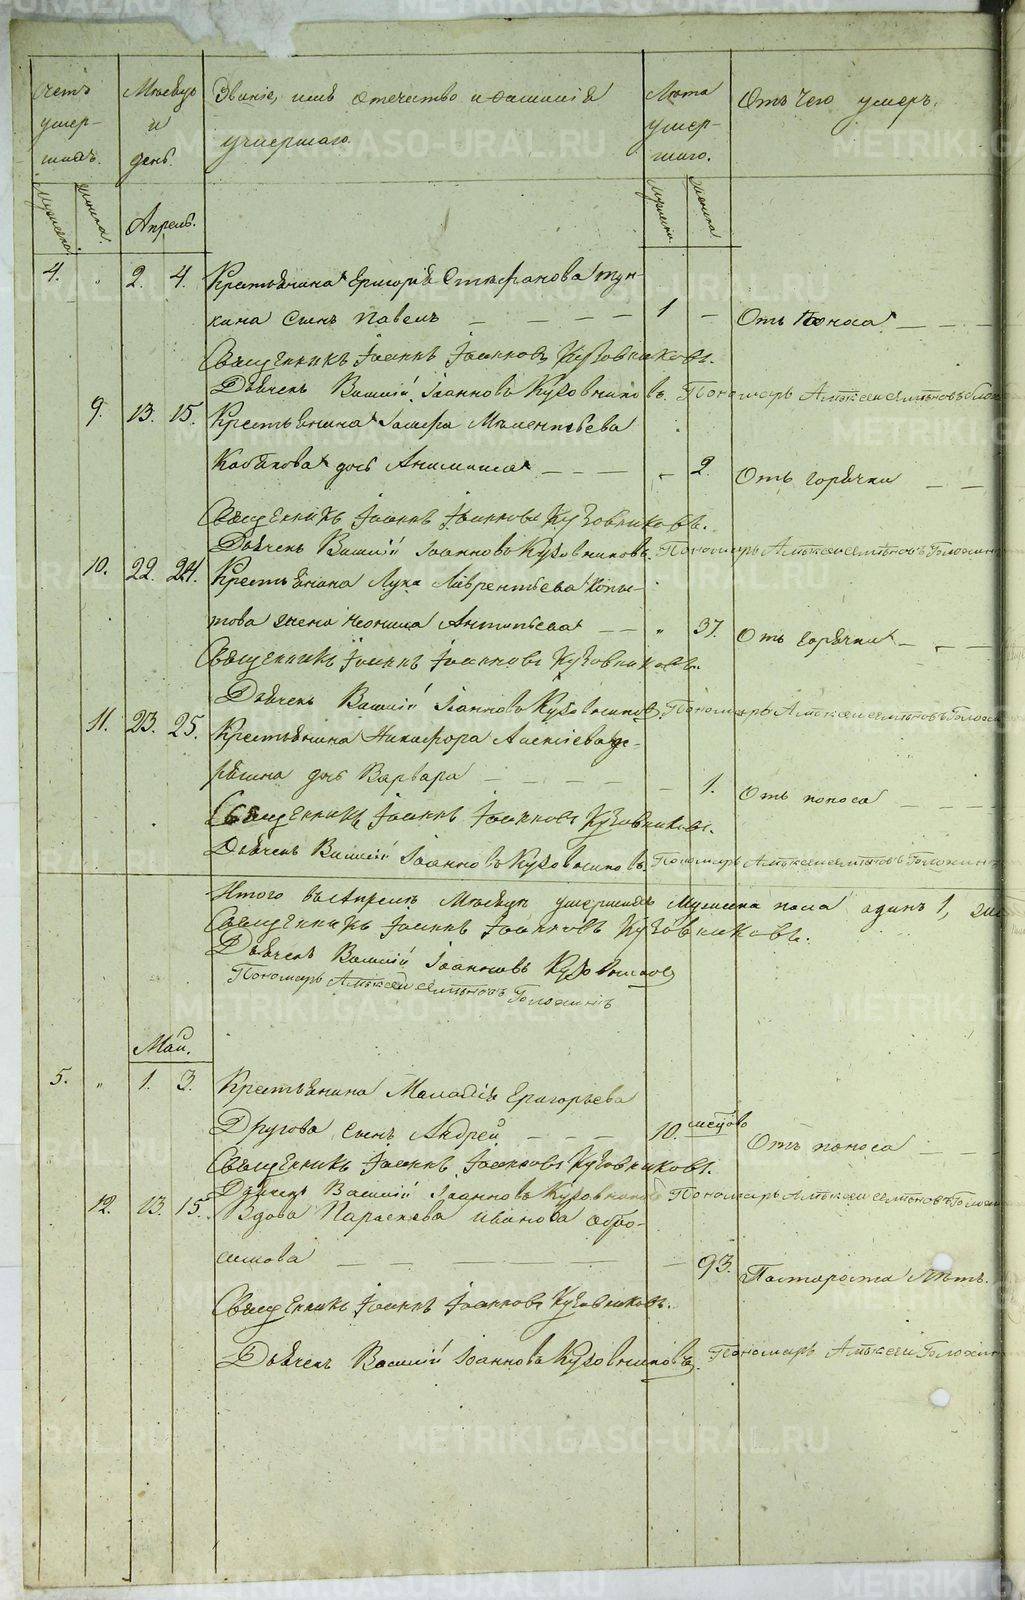 Счетъ умер- шихъ.
Мужеска. Женска.
Месяцъ и день.
Званіе, имя отечество и фамилія умершаго.
Лета умер- шаго.
Мужеска Женска
Отъ чего умеръ.
Апрель.
4. " 2. 4. Крестьянина Григорія Стефанова
кина сынъ Павелъ — — — — 1 — Отъ поноса — — —
Священникъ Іоаннъ Іоанновъ Кузовниковъ.
Дьячекъ Василій Іоанновъ Кузовниковъ. Пономарь Алексей
9. 13. 15. Крестьянина
дочь Анисима — — — „ 2. Отъ горячки — —
Священникъ Іоаннъ Іоанновъ Кузовниковъ.
Дьячекъ Василій Іоанновъ Кузовниковъ. Пономарь Алексей
10. 22. 24. Крестьянина Луки Лаврентьева Копы-
това жена Неонила Антипьева — — „ 37. Отъ горячки — — —
Священникъ Іоаннъ Іоанновъ Кузовниковъ.
Дьячекъ Василій Іоанновъ Кузовниковъ. Пономарь Алексей
11. 23. 25. Крестьянина Никифора Алексіева
дочь Варвара — — — — — 1. Отъ поноса — — —
Священникъ Іоаннъ Іоанновъ Кузовниковъ.
Дьячекъ Василій Іоанновъ Кузовниковъ. Пономарь Алексей
Итого въ Апреле месяце умершихъ мужеска пола одинъ 1,
Священникъ Іоаннъ Іоанновъ Кузовниковъ.
Дьячекъ Василій Іоанновъ Кузовниковъ
Пономарь Алексей
Май.
5. „ 1. 3. Крестьянина Григорьева
Другова сынъ Андрей — — — 10. месецовъ Отъ поноса —
Священникъ Іоаннъ Іоанновъ Кузовниковъ.
Дьячекъ Василій Іоанновъ Кузовниковъ Пономарь Алексей
12. 13. 15. Вдова Параскева Иванова Абро-
симова — — — — — — 93. Постарости летъ.
Священникъ Іоаннъ Іоанновъ Кузовниковъ.
Дьячекъ Василій Іоанновъ Кузовниковъ. Пономарь Алексей
METRIKI.GASO-URAL.RU